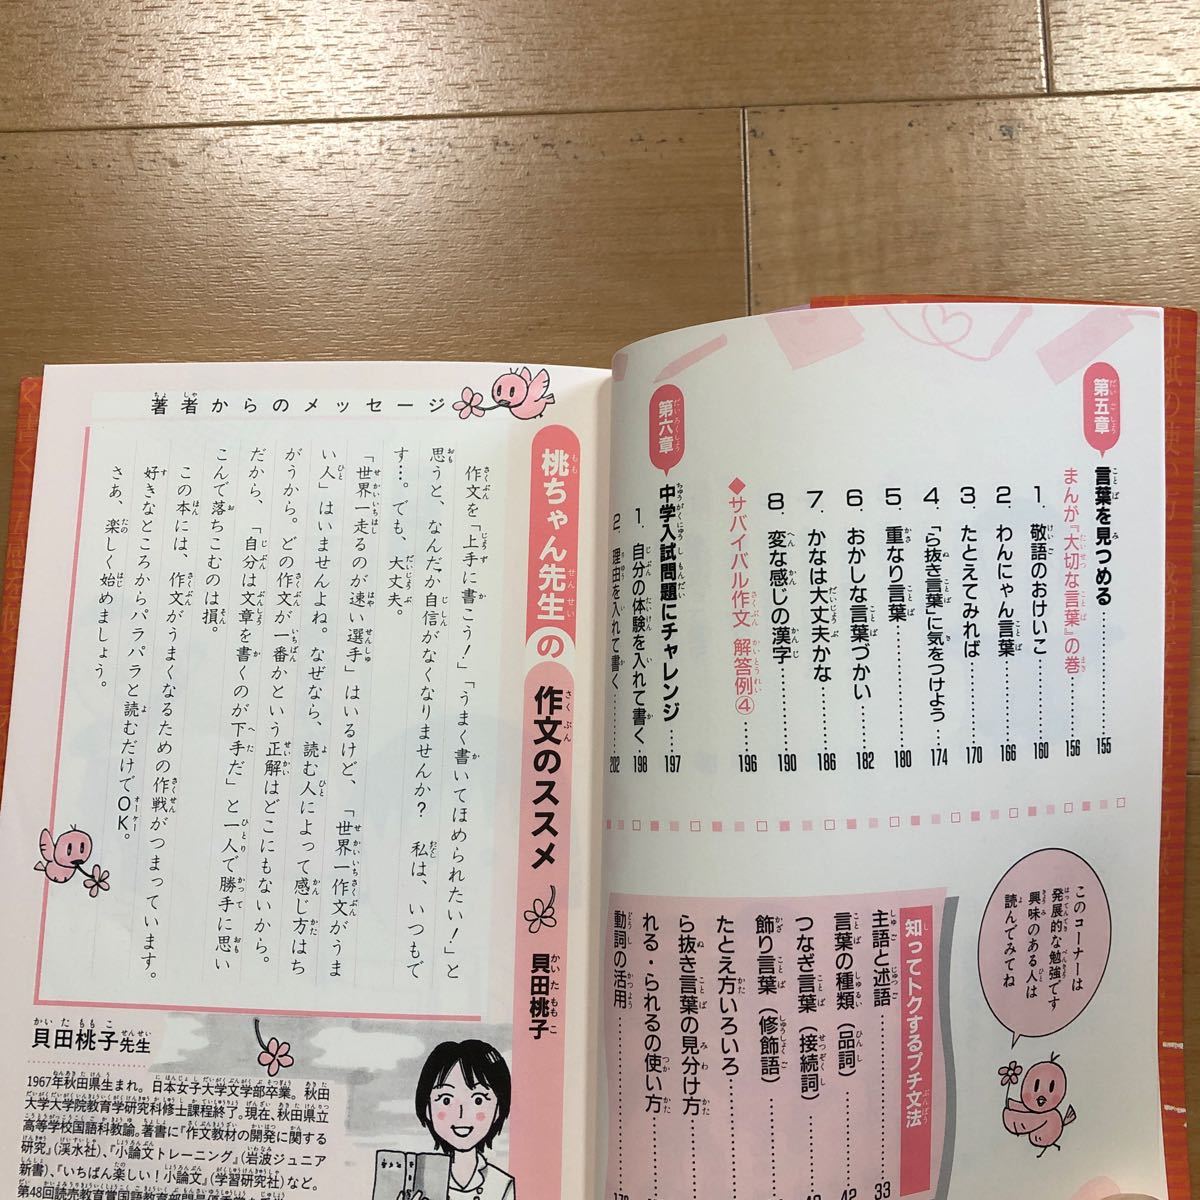 第五章 言葉を見つめる……155
まんが『大切な言葉』の巻……156
1. 敬語のおけいこ……160
2. わんにゃん言葉……166
3. たとえてみれば……170
4. 「ら抜き言葉」に気をつけよう……174
5. 重なり言葉……180
6. おかしな言葉づかい……182
7. かなは大丈夫かな……186
8. 変な感じの漢字……190
◆サバイバル作文 解答例④……196
第六章 中学入試問題にチャレンジ……197
1. 自分の体験を入れて書く……198
2. 理由を入れて書く……202
このコーナーは
発展的な勉強です
興味のある人は
読んでみてね
知ってトクするプチ文法
主語と述語……33
言葉の種類(品詞)……42
つなぎ言葉(接続詞)
飾り言葉(修飾語)
たとえ方いろいろ
ら抜き言葉の見分け方
れる・られるの使い方
動詞の活用
著者からのメッセージ
桃ちゃん先生の作文のススメ 貝田桃子
作文を「上手に書こう!」「うまく書いてほめられたい!」と
思うと、なんだか自信がなくなりませんか? 私は、いつもで
す…。でも、大丈夫。
「世界一走るのが速い選手」はいるけど、「世界一作文がうま
い人」はいませんよね。なぜなら、読む人によって感じ方はち
がうから。どの作文が一番かという正解はどこにもないから。
だから、「自分は文章を書くのが下手だ」と一人で勝手に思い
こんで落ちこむのは損。
この本には、作文がうまくなるための作戦がつまっています。
好きなところからパラパラと読むだけでOK。
さあ、楽しく始めましょう。
貝田桃子先生
1967年秋田県生まれ。日本女子大学文学部卒業。秋田
大学大学院教育学研究科修士課程終了。現在、秋田県立
高等学校国語科教諭。著書に『作文教材の開発に関する
研究』(溪水社)、『小論文トレーニング』(岩波ジュニア
新書)、『いちばん楽しい!小論文』(学習研究社)など。
第48回読売教育賞国語教育部門